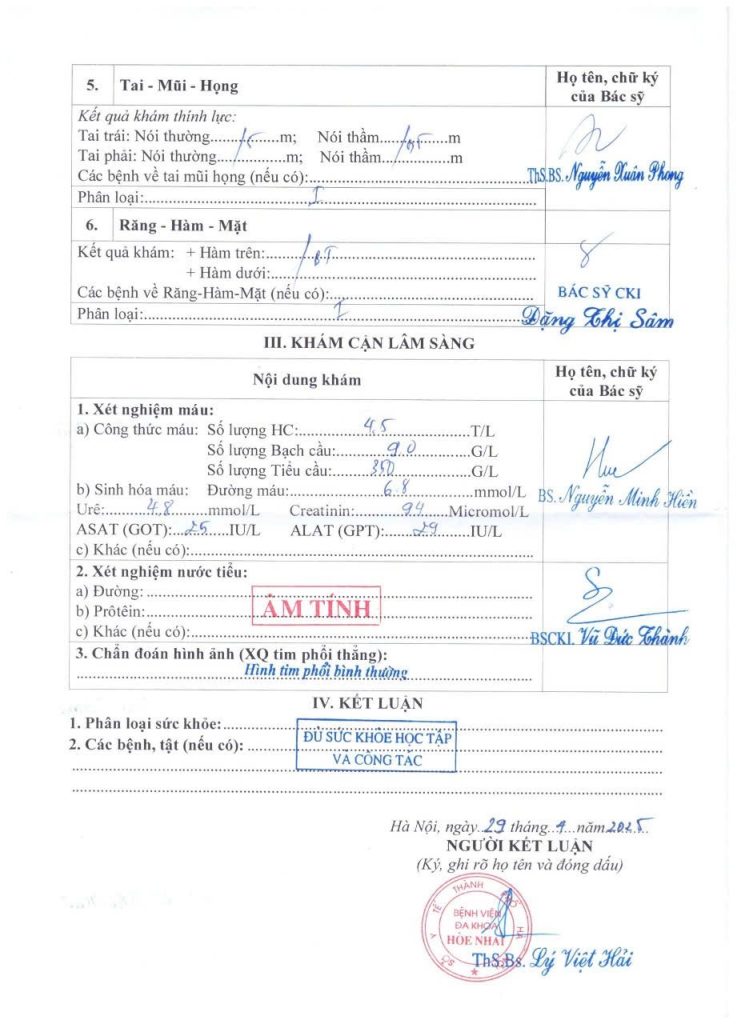 5. Tai - Mũi - Họng
Họ tên, chữ ký
của Bác sỹ
Kết quả khám thính lực:
Tai trái: Nói thường..........m; Nói thầm..........m
Tai phải: Nói thường..........m; Nói thầm..........m
Các bệnh về tai mũi họng (nếu có):
ThS.BS. Nguyễn Xuân Phong
Phân loại: I
6. Răng - Hàm - Mặt
Kết quả khám: + Hàm trên: BT
+ Hàm dưới:
Các bệnh về Răng-Hàm-Mặt (nếu có):
BÁC SỸ CKI
Phân loại: I
Đặng Thị Sâm
III. KHÁM CẬN LÂM SÀNG
Nội dung khám
Họ tên, chữ ký
của Bác sỹ
1. Xét nghiệm máu:
a) Công thức máu: Số lượng HC: 4,5 T/L
Số lượng Bạch cầu: 9.0 G/L
Số lượng Tiểu cầu: 350 G/L
b) Sinh hóa máu: Đường máu: 6.8 mmol/L
BS. Nguyễn Minh Hiền
Urê: 4.8 mmol/L Creatinin: 94 Micromol/L
ASAT (GOT): 25 IU/L ALAT (GPT): 29 IU/L
c) Khác (nếu có):
2. Xét nghiệm nước tiểu:
a) Đường:
b) Prôtêin:
ÂM TÍNH
c) Khác (nếu có):
BSCKI. Vũ Đức Thành
3. Chẩn đoán hình ảnh (XQ tim phổi thẳng):
Hình tim phổi bình thường
IV. KẾT LUẬN
1. Phân loại sức khỏe:
ĐỦ SỨC KHỎE HỌC TẬP
2. Các bệnh, tật (nếu có):
VÀ CÔNG TÁC
Hà Nội, ngày 29 tháng 4 năm 2025
NGƯỜI KẾT LUẬN
(Ký, ghi rõ họ tên và đóng dấu)
SỞ Y TẾ THÀNH PHỐ HÀ
BỆNH VIỆN
ĐA KHOA
HÒE NHAI
ThS.Bs. Lý Việt Hải